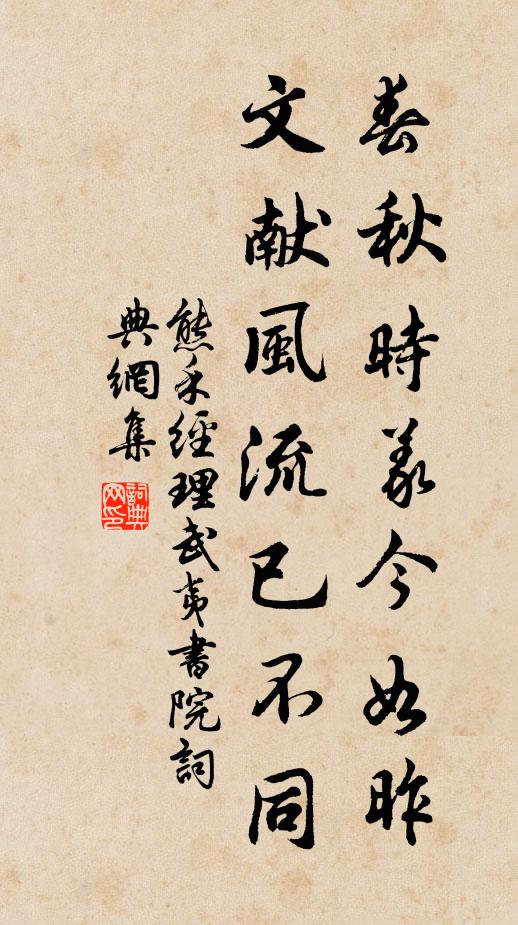 春秋時義今如昨
文献風流已不同
熊禾經理武夷書院詞
典網集
詞典
网印